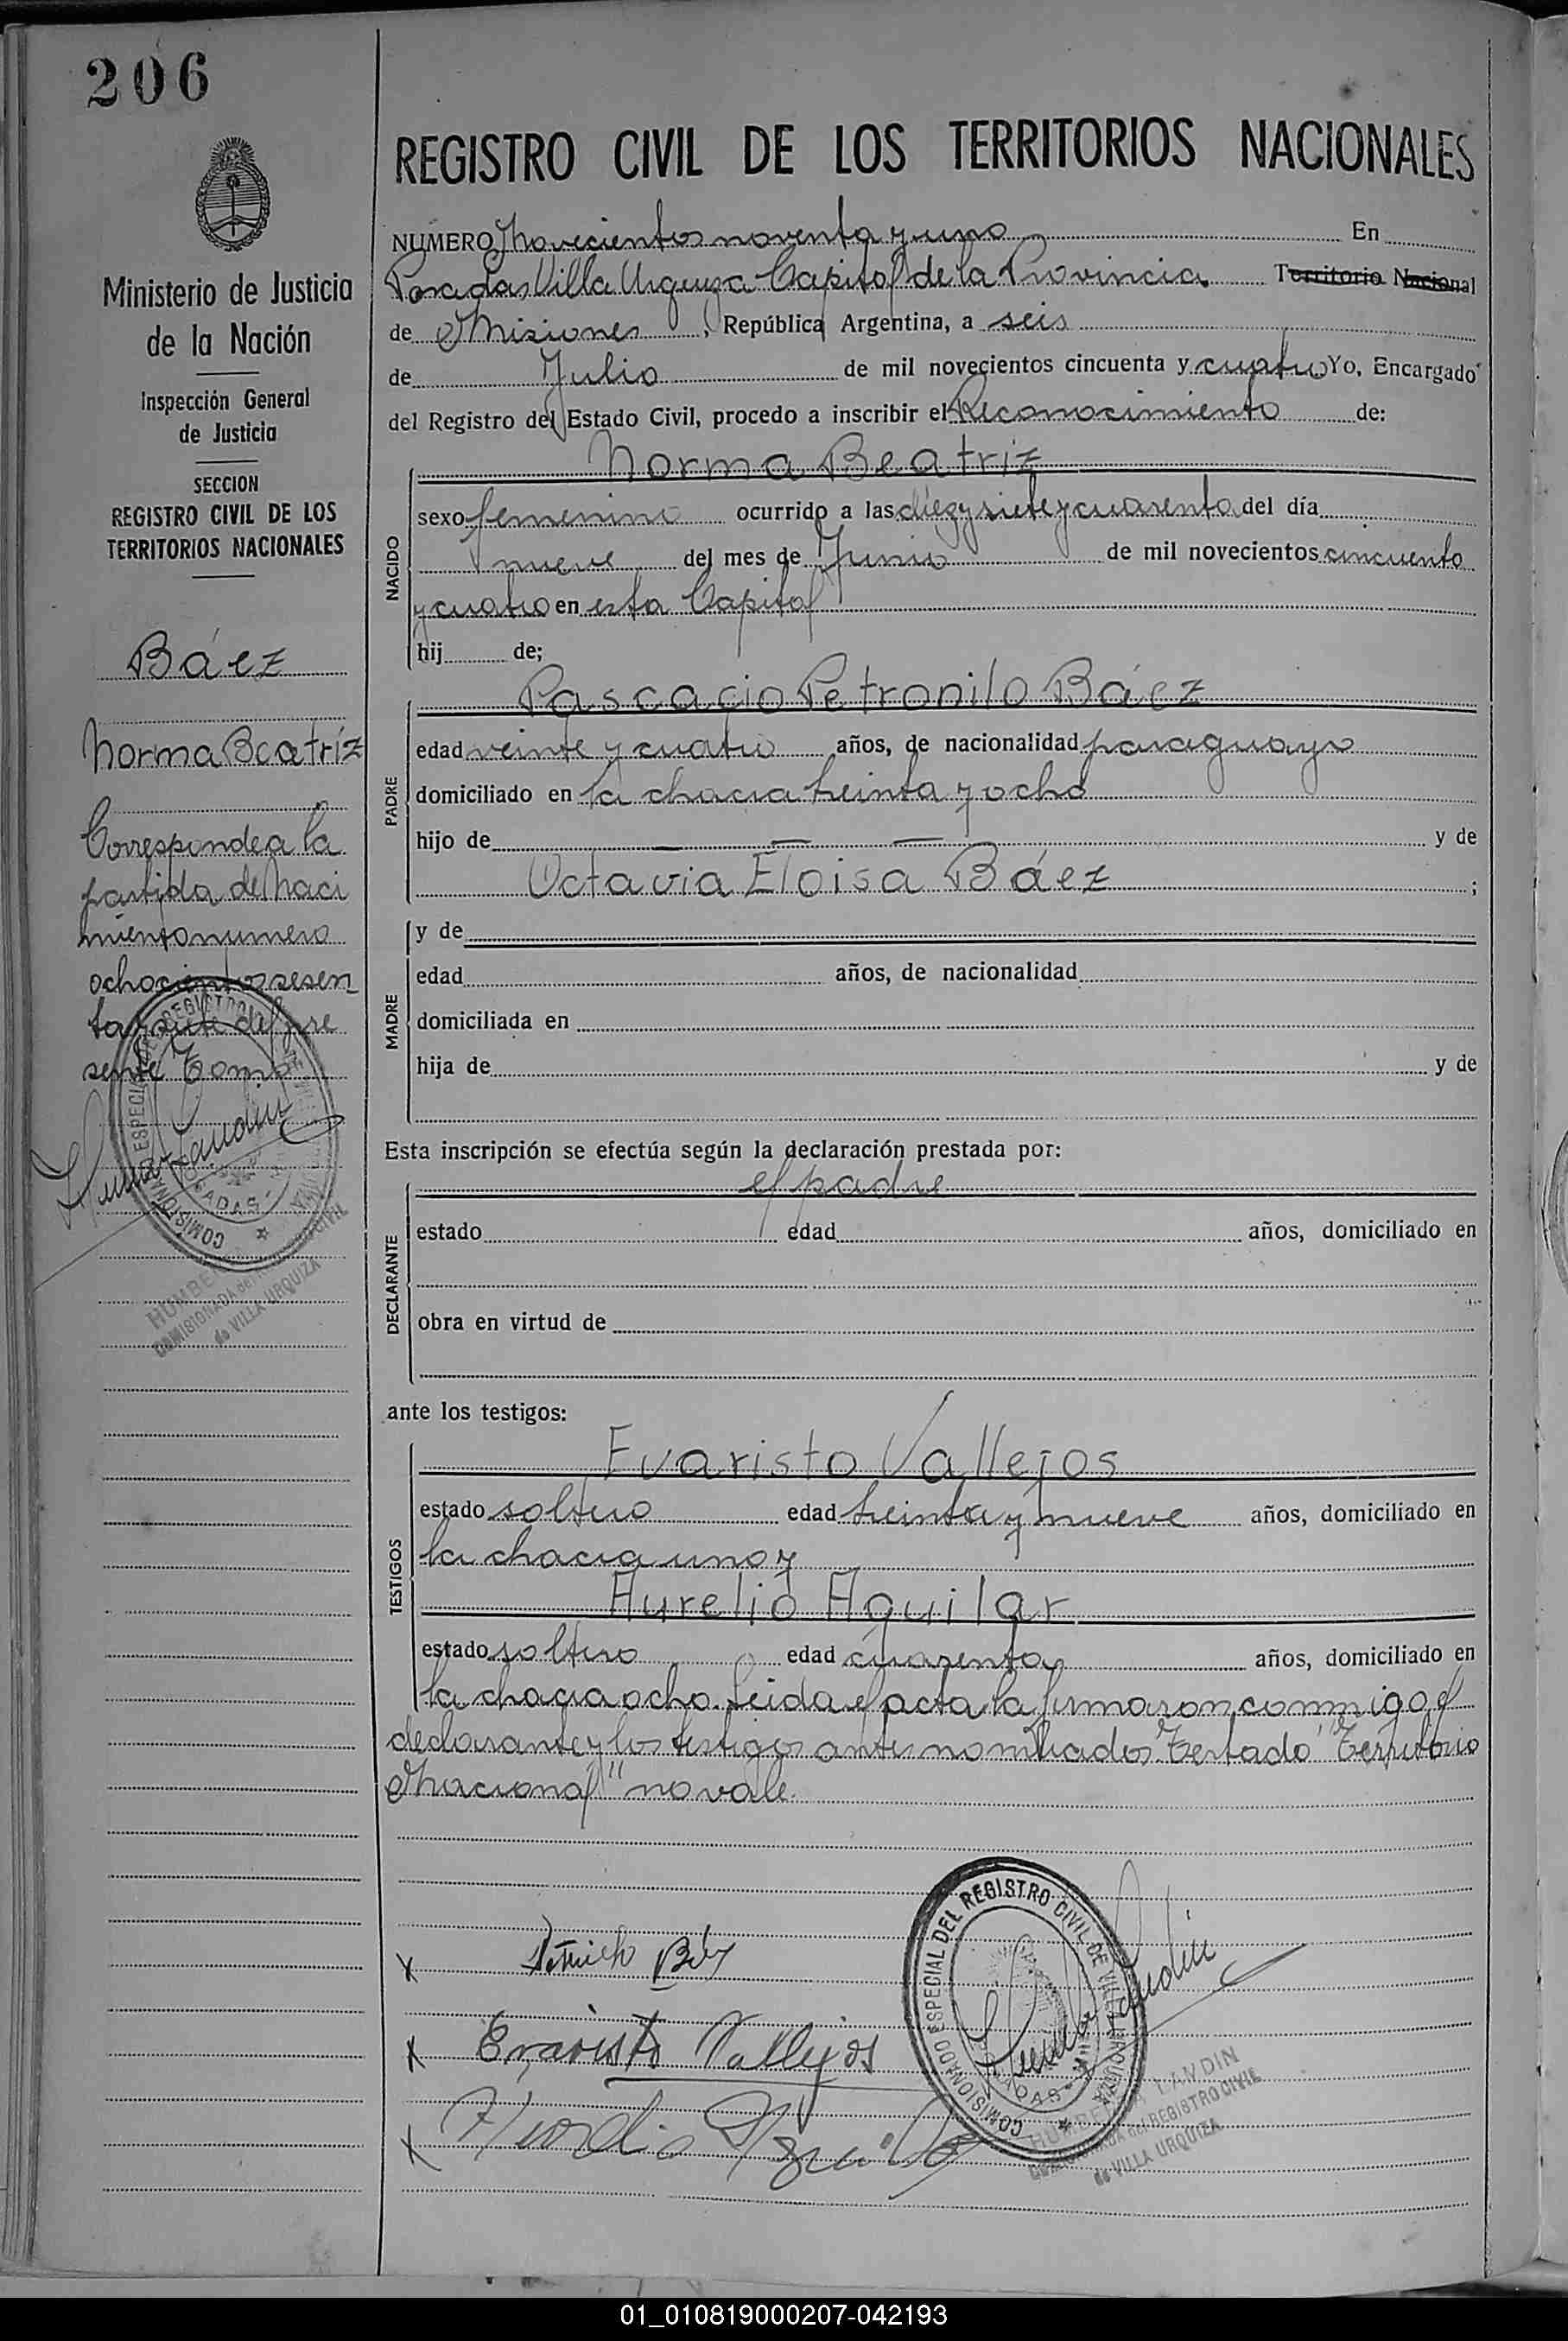 206
Ministerio de Justicia
de la Nación
Inspección General
de Justicia
SECCION
REGISTRO CIVIL DE LOS
TERRITORIOS NACIONALES
Báez
Norma Beatríz
Corresponde a la
partida de Naci
miento numero
ochocientos sesen
ta y siete del pre
sente Tomo
COMISIONADO ESPECIAL DEL REGISTRO
COMISIONADA del REGISTRO CIVIL
de VILLA URQUIZA
REGISTRO CIVIL DE LOS TERRITORIOS NACIONALES
NUMERO Novecientos noventa y uno En
Posadas Villa Urquiza Capital de la Provincia Territorio Nacional
de Misiones, República Argentina, a seis
de Julio de mil novecientos cincuenta y cuatro Yo, Encargado
del Registro del Estado Civil, procedo a inscribir el Reconocimiento de:
Norma Beatriz
NACIDO
sexo femenino ocurrido a las diez y siete y cuarenta del día
nueve del mes de Junio de mil novecientos cincuenta
y cuatro en esta Capital
hij de;
Pascacio Petronilo Báez
PADRE
edad veinte y cuatro años, de nacionalidad paraguayo
domiciliado en la chacra treinta y ocho
hijo de y de
Octavia Eloisa Báez ;
MADRE
y de
edad años, de nacionalidad
domiciliada en
hija de y de
Esta inscripción se efectúa según la declaración prestada por:
el padre
DECLARANTE
estado edad años, domiciliado en
obra en virtud de
ante los testigos:
Evaristo Vallejos
TESTIGOS
estado soltero edad treinta y nueve años, domiciliado en
la chacra uno y
Aurelio Aguilar
estado soltero edad cuarenta años, domiciliado en
la chacra ocho. Leida el acta la firmaron conmigo el
declarante y los testigos antes nombrados. Testado "Territorio
Nacional" no vale.
X Báez
X Evaristo Vallejos
X
COMISIONADO ESPECIAL DEL REGISTRO CIVIL DE VILLA URQUIZA
LANDIN
del REGISTRO CIVIL
de VILLA URQUIZA
01_010819000207-042193